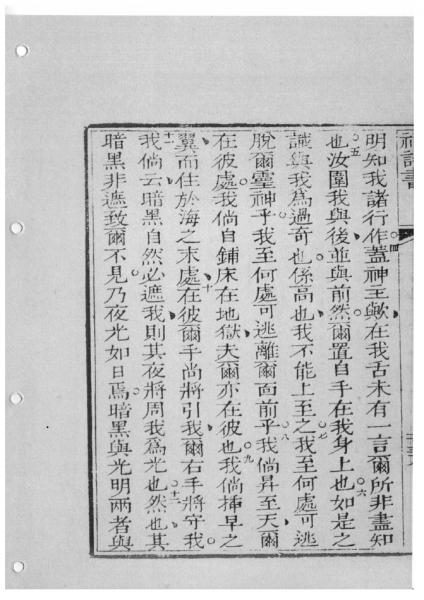 神詩書
明知我諸行作四蓋神主歟在我舌未有一言爾所非盡知
也五汝圍我與後並與前然爾置自手在我身上也六如是之
識與我爲過奇也係高也我不能上至之七我至何處可逃
脫爾靈神乎我至何處可逃離爾面前乎八我倘昇至天爾
在彼處我倘自鋪床在地獄夫爾亦在彼也九我倘揷早之
翼而住於海之末處十在彼爾手尚將引我爾右手將守我
十一我倘云暗黑自然必遮我則其夜將周我爲光也十二然也其
暗黑非遮致爾不見乃夜光如日焉暗黑與光明兩者與